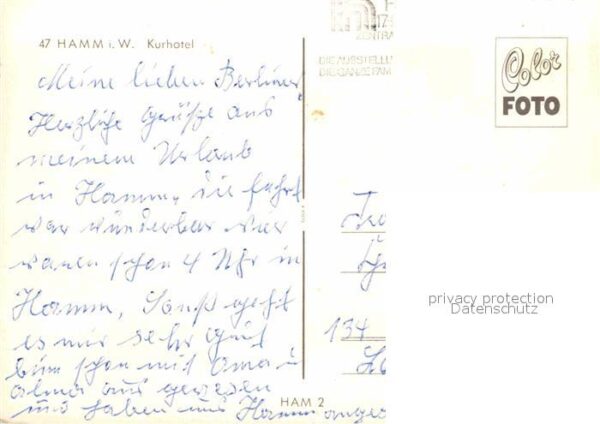 47 HAMM i. W. Kurhotel
Meine lieben Berliner
Herzliche Grüße aus
meinem Urlaub
in Hamm, die fahrt
war wunderbar wier
waren schon 4 Uhr in
Hamm, Sonst geht
es mir sehr gut
bin schon mit Oma u
alma aus gewesen
und haben uns Hamm
HAM 2
ZENTRA
DIE AUSSTELLU
DIE GANZE FAM
Color
FOTO
134
privacy protection
Datenschutz